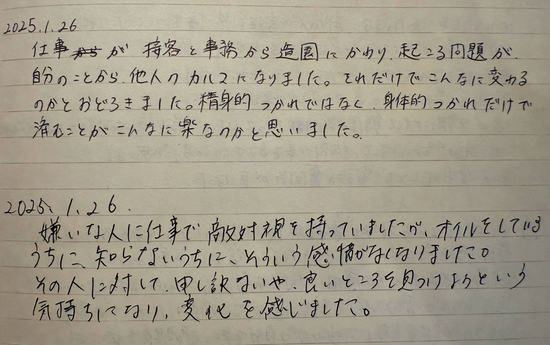 2025.1.26
仕事からが 接客と事務から造園にかわり、起こる問題が、
自分のことから、他人のカルマになりました。それだけでこんなに変わる
のかとおどろきました。精身的つかれではなく、身体的つかれだけで
済むことがこんなに楽なのかと思いました。
2025.1.26.
嫌いな人に仕事で敵対視を持っていましたが、オイルをしている
うちに、知らないうちに、そういう感情がなくなりました。
その人に対して、申し訳ないや、良いところを見つけようという
気持ちになり、変化を感じました。